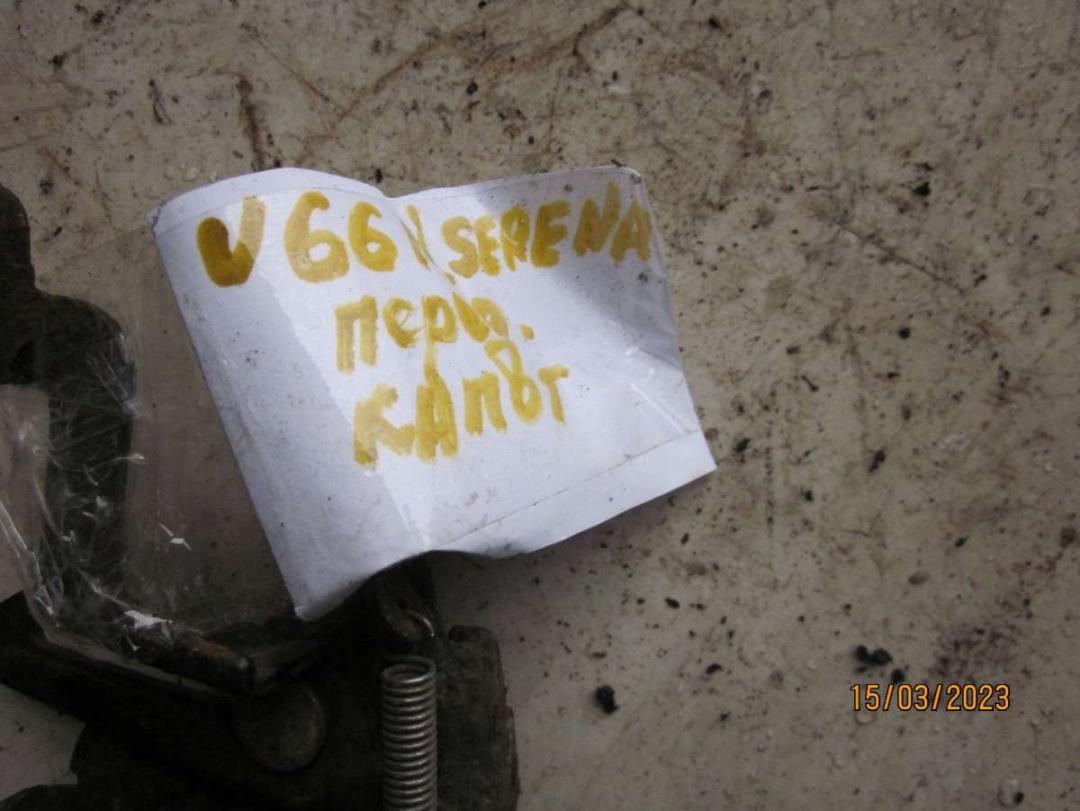 U66 SERENA
КАПОТ
15/03/2023